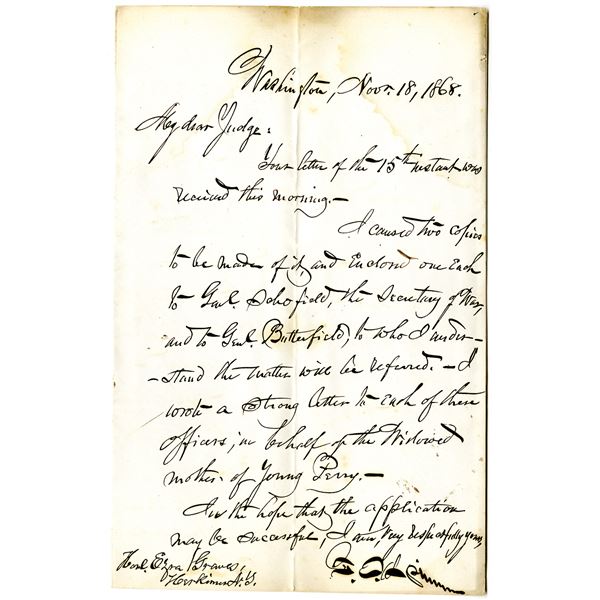 Washington, Novr. 18, 1868.
My dear Judge:
Your letter of the 15th instant was
received this morning.—
I caused two copies
to be made of it, and Enclosed one Each
to Genl. Schofield, the Secretary of War,
and to Genl. Butterfield, to who I under-
-stand the matter will be referred.— I
wrote a strong letter to Each of these
officers, in behalf of the Widowed
mother of Young Perry.—
In the hope that the application
may be successful, I am, Very respectfully yours,
Honl. Ezra Graves,
Herkimer N.Y.